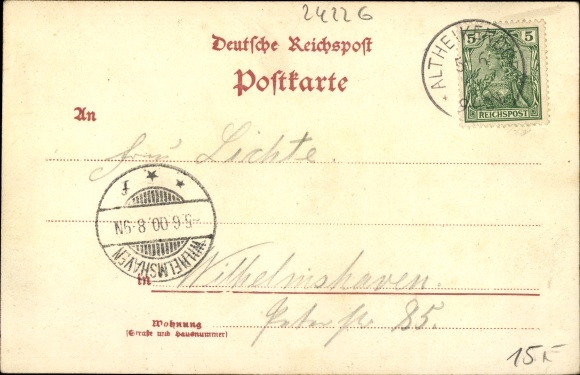 24226
Deutsche Reichspost
Postkarte
ALTHEIKENDORF
5 5
REICHSPOST
An
Lichte.
5.6.00.8-9N
WILHELMSHAVEN
in Wilhelmshaven.
85.
Wohnung
(Straße und Hausnummer)
15.-